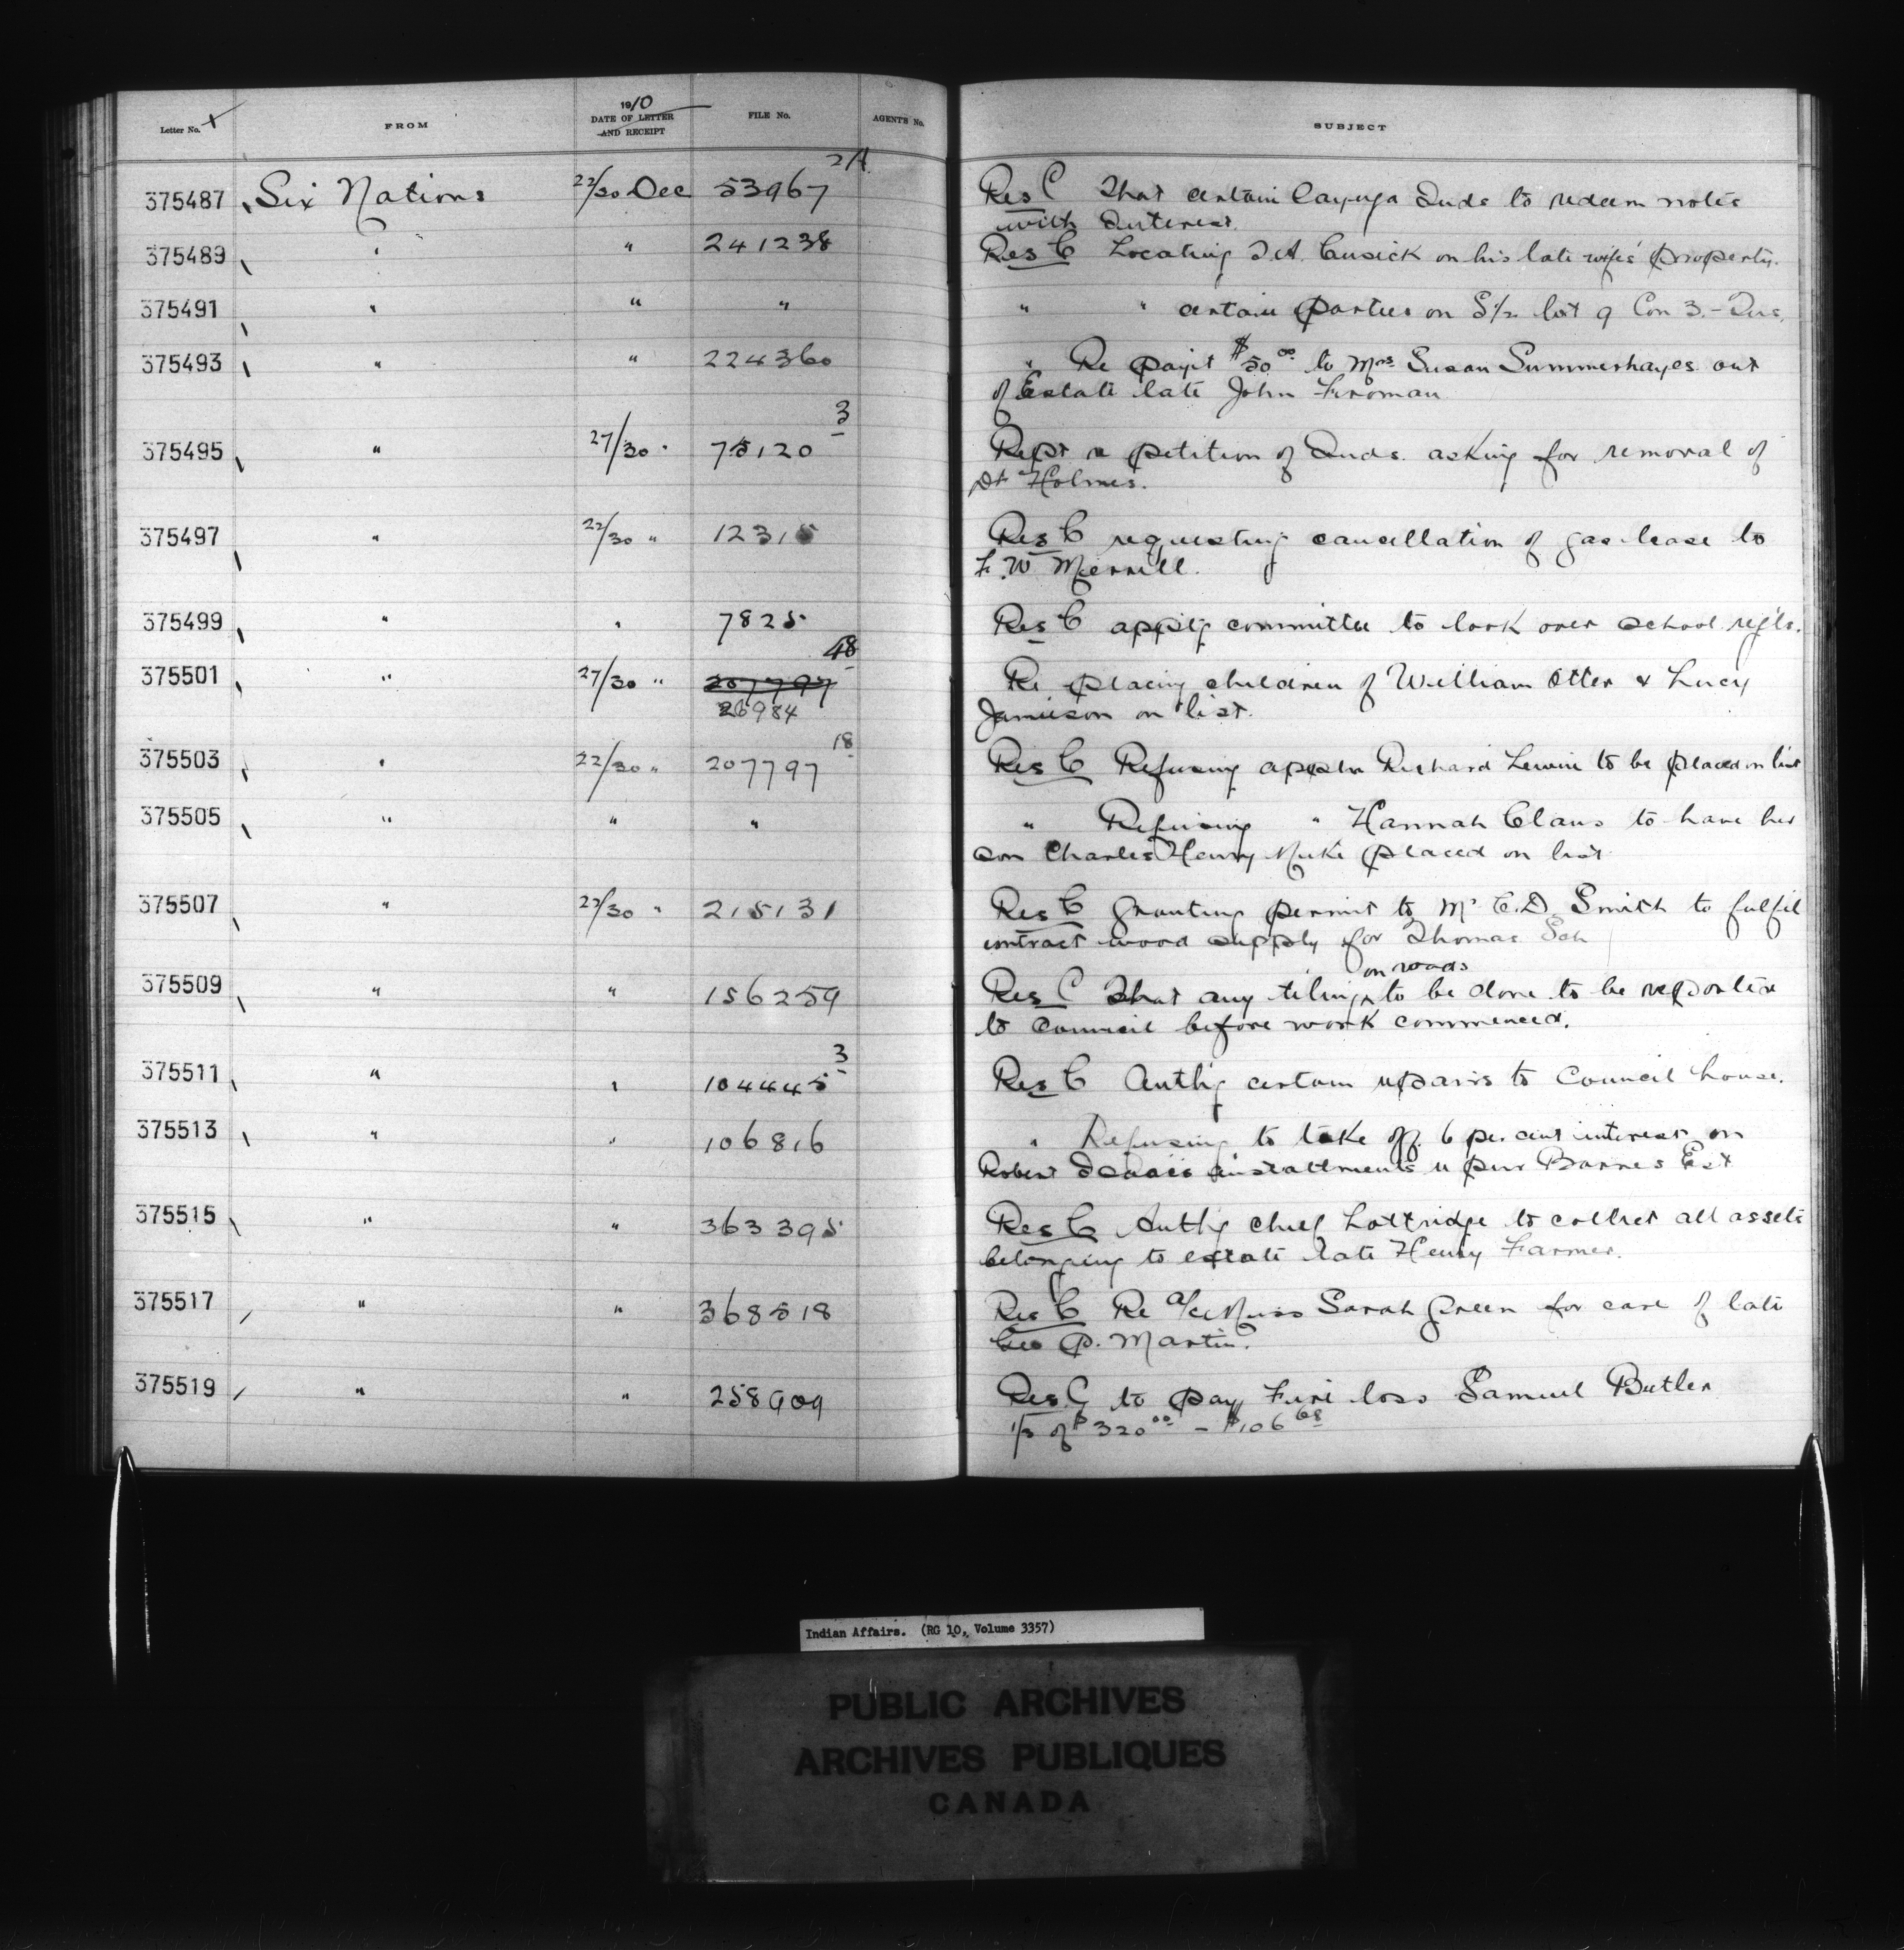 Letter No. FROM 1910 DATE OF LETTER AND RECEIPT FILE No. AGENTS No. SUBJECT
375487 Six Nations 22/30 Dec 53967 2A Res C That certain Cayuga Inds to redeem notes
with Interest.
375489 " " 241238 Res C Locating J.A. Cusick on his late wife's property.
375491 " " " " " certain parties on S½ lot 9 Con 3.-Tus.
375493 " " 224360 " Re payt $50.00 to Mrs Susan Summerhayes out
of Estate late John Froman
375495 " 27/30 " 75120 3 Rept re petition of Inds. asking for removal of
Dr Holmes.
375497 " 22/30 " 12315 Res C requesting cancellation of gas lease to
F.W Merrill.
375499 " " 7825 Res C apptg committee to look over school regls.
375501 " 27/30 " 207797 48 Re placing children of William Otter & Lucy
26984 Jamieson on list.
375503 " 22/30 " 207797 18 Res C Refusing appln Richard Lewis to be placed on list
375505 " " " " Refusing " Hannah Claus to have her
son Charles Henry placed on list
375507 " 22/30 " 215131 Res C Granting permit to Mr C.D. Smith to fulfil
contract wood supply for Thomas Sch
on roads
375509 " " 156259 Res C That any tiling ^ to be done to be reported
to Council before work commenced.
375511 " " 104445 3 Res C Authg certain repairs to Council house.
375513 " " 106816 " Refusing to take off 6 per cent interest on
Robert Isaacs installments re pur Barnes Est
375515 " " 363395 Res C Authg Chief Lottridge to collect all assets
belonging to estate late Henry Farmer.
375517 " " 368518 Res C Re a/c Miss Sarah Green for care of late
Geo P. Martin.
375519 " " 258909 Res C to pay Fire loss Samuel Butler
1/3 of $320.00 - $106.68
Indian Affairs. (RG 10, Volume 3357)
PUBLIC ARCHIVES
ARCHIVES PUBLIQUES
CANADA